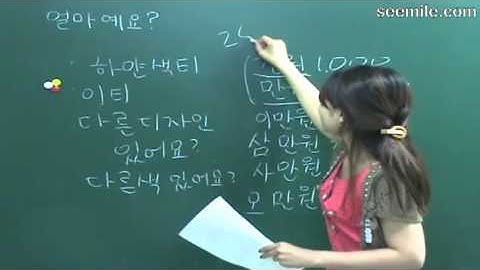 seemile.com
얼마예요?
하얀색티
이티
다른디자인
있어요?
다른색 있어요?
24
원 1,000
만
이만원
삼만원
사만원
오만원